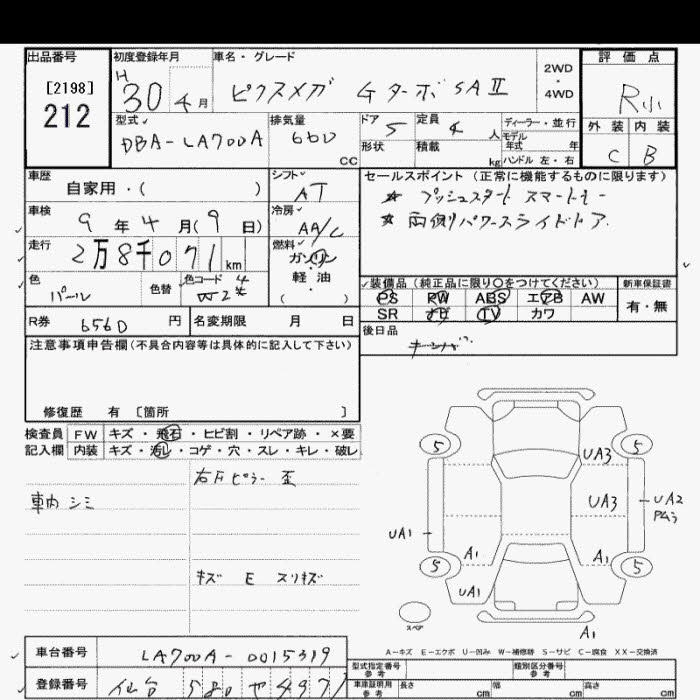 出品番号 初度登録年月 車名・グレード 2WD・4WD 評価点
[2198] H 30 4月 ピクスメガ GターボSAⅡ R小
212 型式 排気量 ドア 定員 ディーラー・並行 外装 内装
DBA-LA700A 660 CC 5 4人 モデル年式 年 C B
形状 積載 kg ハンドル 左・右
車歴 シフト セールスポイント (正常に機能するものに限ります)
自家用・( ) AT ★ プッシュスタート スマートキー
車検 冷房 ★ 両側パワースライドドア
9年4月(9日) AA/C
走行 2万8千071km 燃料
ガソリン・軽油 ( )
色 色替 色コード 装備品 (純正品に限り○をつけてください) 新車保証書
パール W24 PS PW ABS エアB AW 有・無
SR ナビ TV カワ
R券 6560円 名変期限 月 日 後日品
注意事項申告欄(不具合内容等は具体的に記入して下さい)
修復歴 有 [箇所 ]
検査員 FW キズ・飛石・ヒビ割・リペア跡・×要
記入欄 内装 キズ・汚レ・コゲ・穴・スレ・キレ・破レ
右Fピラー 歪
車内 シミ
キズ E スリキズ
5 5
UA3
UA3 UA2
UA1
A1 A1
5 5
UA1
スペア
A1
A-キズ E-エクボ U-凹み W-補修跡 S-サビ C-腐食 XX-交換済
車台番号 LA700A-0015319
型式指定番号 参考 類別区分番号 参考
登録番号 仙台 580 や 497
車庫証明用 参考 長さ cm 幅 cm 高さ cm